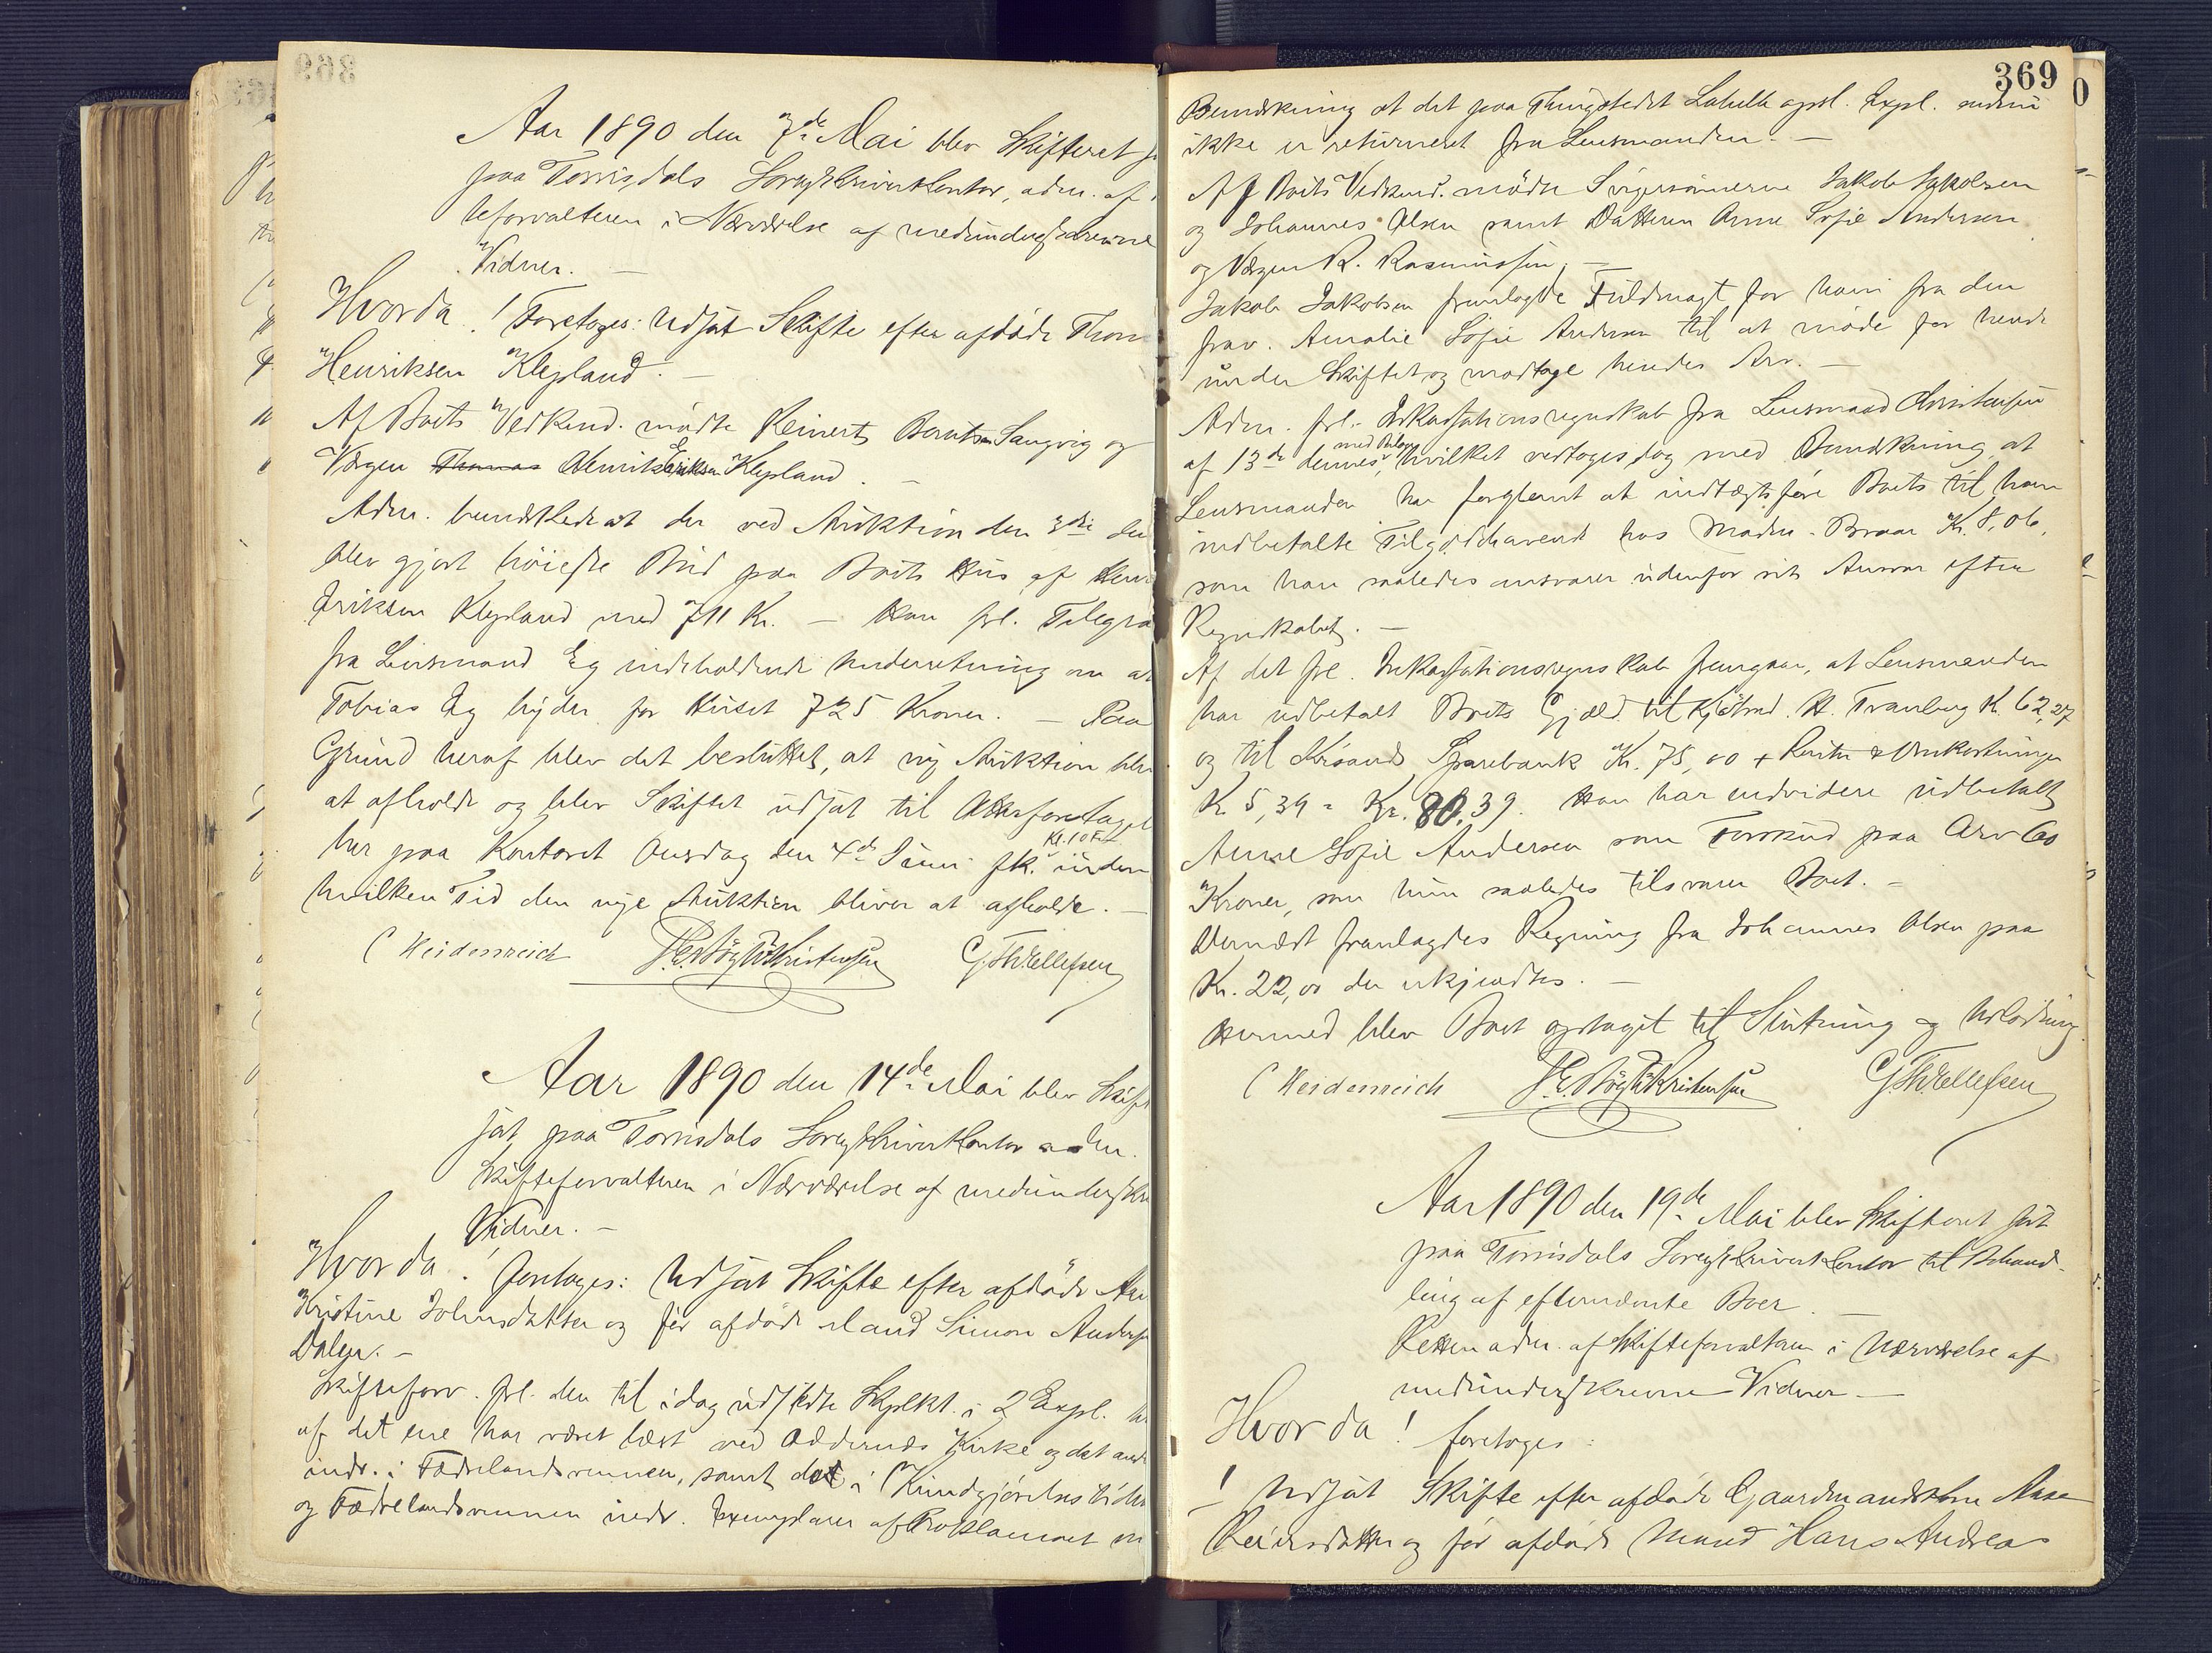 Aar 1890 den 7de Mai blev Skifteret
paa Torrisdals Sorenskriverkontor, adm. af
teforvalteren i Nærværelse af medunderskrevne
Vidner. —
Hvorda! Foretoges: Udsat Skifte efter afdøde Thom
Henriksen Klepland. —
Af Boets Vedkend. mødte Reinert Berntsen Langvig og
Værgen Thomas Henrik Eriksen Klepland. —
Adm. bemærkede at der ved Auktion den 3die den
blev gjort høieste Bud paa Boets Hus af Hen
Eriksen Klepland med 711 Kr. — Han frl. Telegra
fra Lensmand Eg indeholdende Underretning om at
Tobias Eg byder for Huset 725 Kroner. — Paa
Grund heraf blev det besluttet, at ny Auktion bliv
at afholde og blev Skiftet udsat til Atterforetagel
her paa Kontoret Onsdag den 4de Juni fk. Kl. 10 F inden
hvilken Tid den nye Auktion bliver at afholde. —
C Heidenreich Kristensen G. Th. Ellefsen
Aar 1890 den 14de Mai blev Skift
sat paa Torrisdals Sorenskriverkontor adm.
Skifteforvalteren i Nærværelse af medunderskre
Vidner. —
Hvorda! Foretoges: Udsat Skifte efter afdøde An
Kristine Johnsdatter og før afdøde Mand Simon Anders
Dalen. —
Skifteforv. frl. den til idag udstedte Skplkt. i 2 Expl. h
af det ene har været læst ved Oddernæs Kirke og det and
indr. i Fædrelandsvennen, samt det i Kundgjørelsestiden
og Fædrelandsvennen indr. Exemplarer af Proklamaet m
369
Bemærkning at det paa Thingstedet Lahelle opsl. Expl. endnu
ikke er returneret fra Lensmanden. —
Af Boets Vedkend. mødte Svigersønnerne Jakob Jakobsen
og Johannes Olsen samt Datteren Anne Sofie Andersen
og Værgen R. Rasmussen. —
Jakob Jakobsen fremlagde Fuldmagt for ham fra den
frav. Amalie Sofie Andersen til at møde for hende
under Skiftet og modtage hendes Arv. —
Adm. frl. Inkassationsregnskab fra Lensmand Christensen
af 13de dennes med Bilag, hvilket vedtoges dog med Bemærkning, at
Lensmanden har forglemt at indtægtsføre Boets til ham
indbetalte Tilgodehavende hos Madm. Braar Kr. 8,06,
som han saaledes ansvarer udenfor sit Ansvar efter
Regnskabet. —
Af det frl. Inkassationsregnskab fremgaar, at Lensmanden
har udbetalt Boets Gjæld til Kjøbmd. H. Tranberg K. 62,27
og til Krsands Sparebank Kr. 75,00 + Renter & Omkostninger
K. 5,39 = Kr. 80,39. Han har endvidere udbetalt
Anne Sofie Andersen som Forskud paa Arv 60
Kroner, som hun saaledes tilsvarer Boet. —
Dernæst fremlagdes Regning fra Johannes Olsen paa
Kr. 22,00 der erkjendtes. —
Hermed blev Boet optaget til Slutning og Udlodning
C Heidenreich Kristensen G. Th. Ellefsen
Aar 1890 den 19de Mai blev Skifteret sat
paa Torrisdals Sorenskriverkontor til Behand-
ling af efternævnte Boer. —
Retten adm. af Skifteforvalteren i Nærværelse af
medunderskrevne Vidner —
Hvorda! foretoges:
1 Udsat Skifte efter afdøde Gaardmandskone Aase
Reiersdatter og før afdøde Mand Hans Andreas